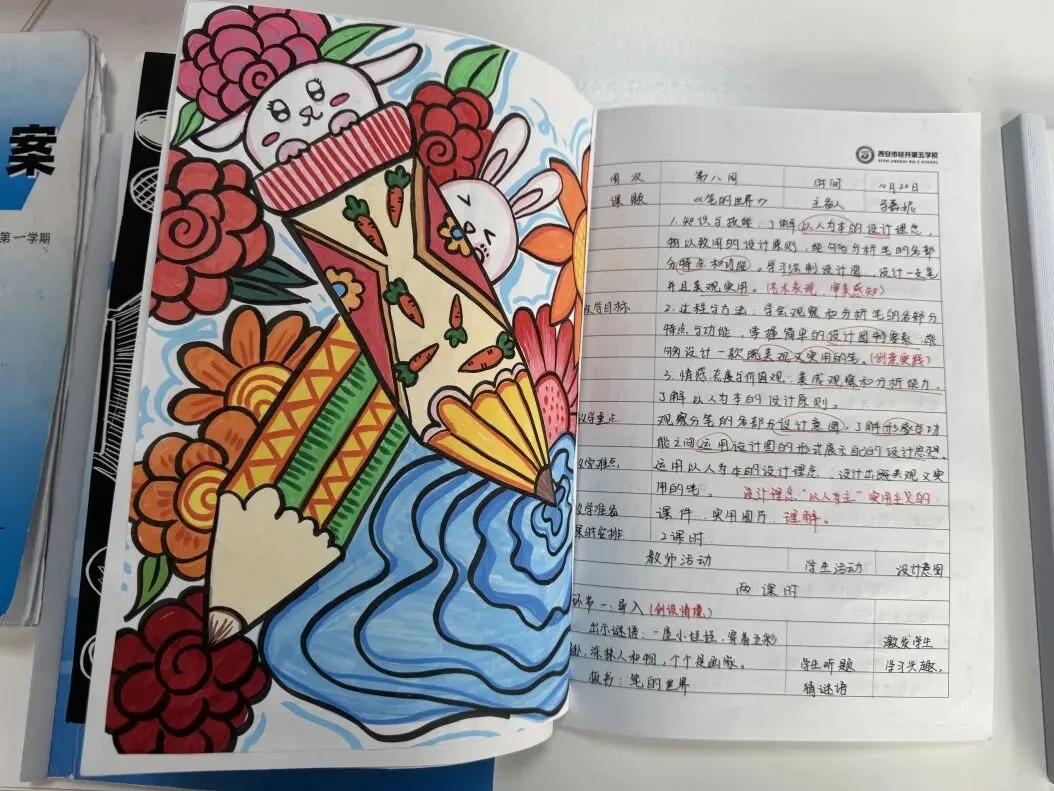 案
第一学期
西安市经开第五学校
XI'AN JINGKAI NO.5 SCHOOL
周次 第八周 时间 10月20日
课题 《笔的世界》 主备人
1.知识与技能:了解以人为本的设计理念,
物以致用的设计原则,能够分析笔的各部
分特点和功能。学习绘制设计图,设计一支笔
并且美观实用。(艺术表现,审美感知)
教学目标 2.过程与方法:学会观察和分析笔的各部分
特点与功能,掌握简单的设计图制要素,能
够设计一款既美观又实用的笔。(创意实践)
3.情感态度与价值观:养成观察和分析能力,
了解以人为本的设计原则。
教学重点 观察分笔的各部分设计意图,了解形态与功
能之间运用设计图的形式展示自己的设计思想。
教学难点 运用以人为本的设计理念,设计出既美观又实
用的笔。 设计理念"以人为主"实用主义的
教学准备 课件、实用图片 理解。
课时安排 2课时.
教师活动 学生活动 设计意图
两课时
环节一:导入(创设情境)
出示谜语:一屋小娃娃,穿着五彩 激发学生
,涂抹人和物,个个是画家。 学生听题 学习兴趣。
板书:笔的世界 猜谜语